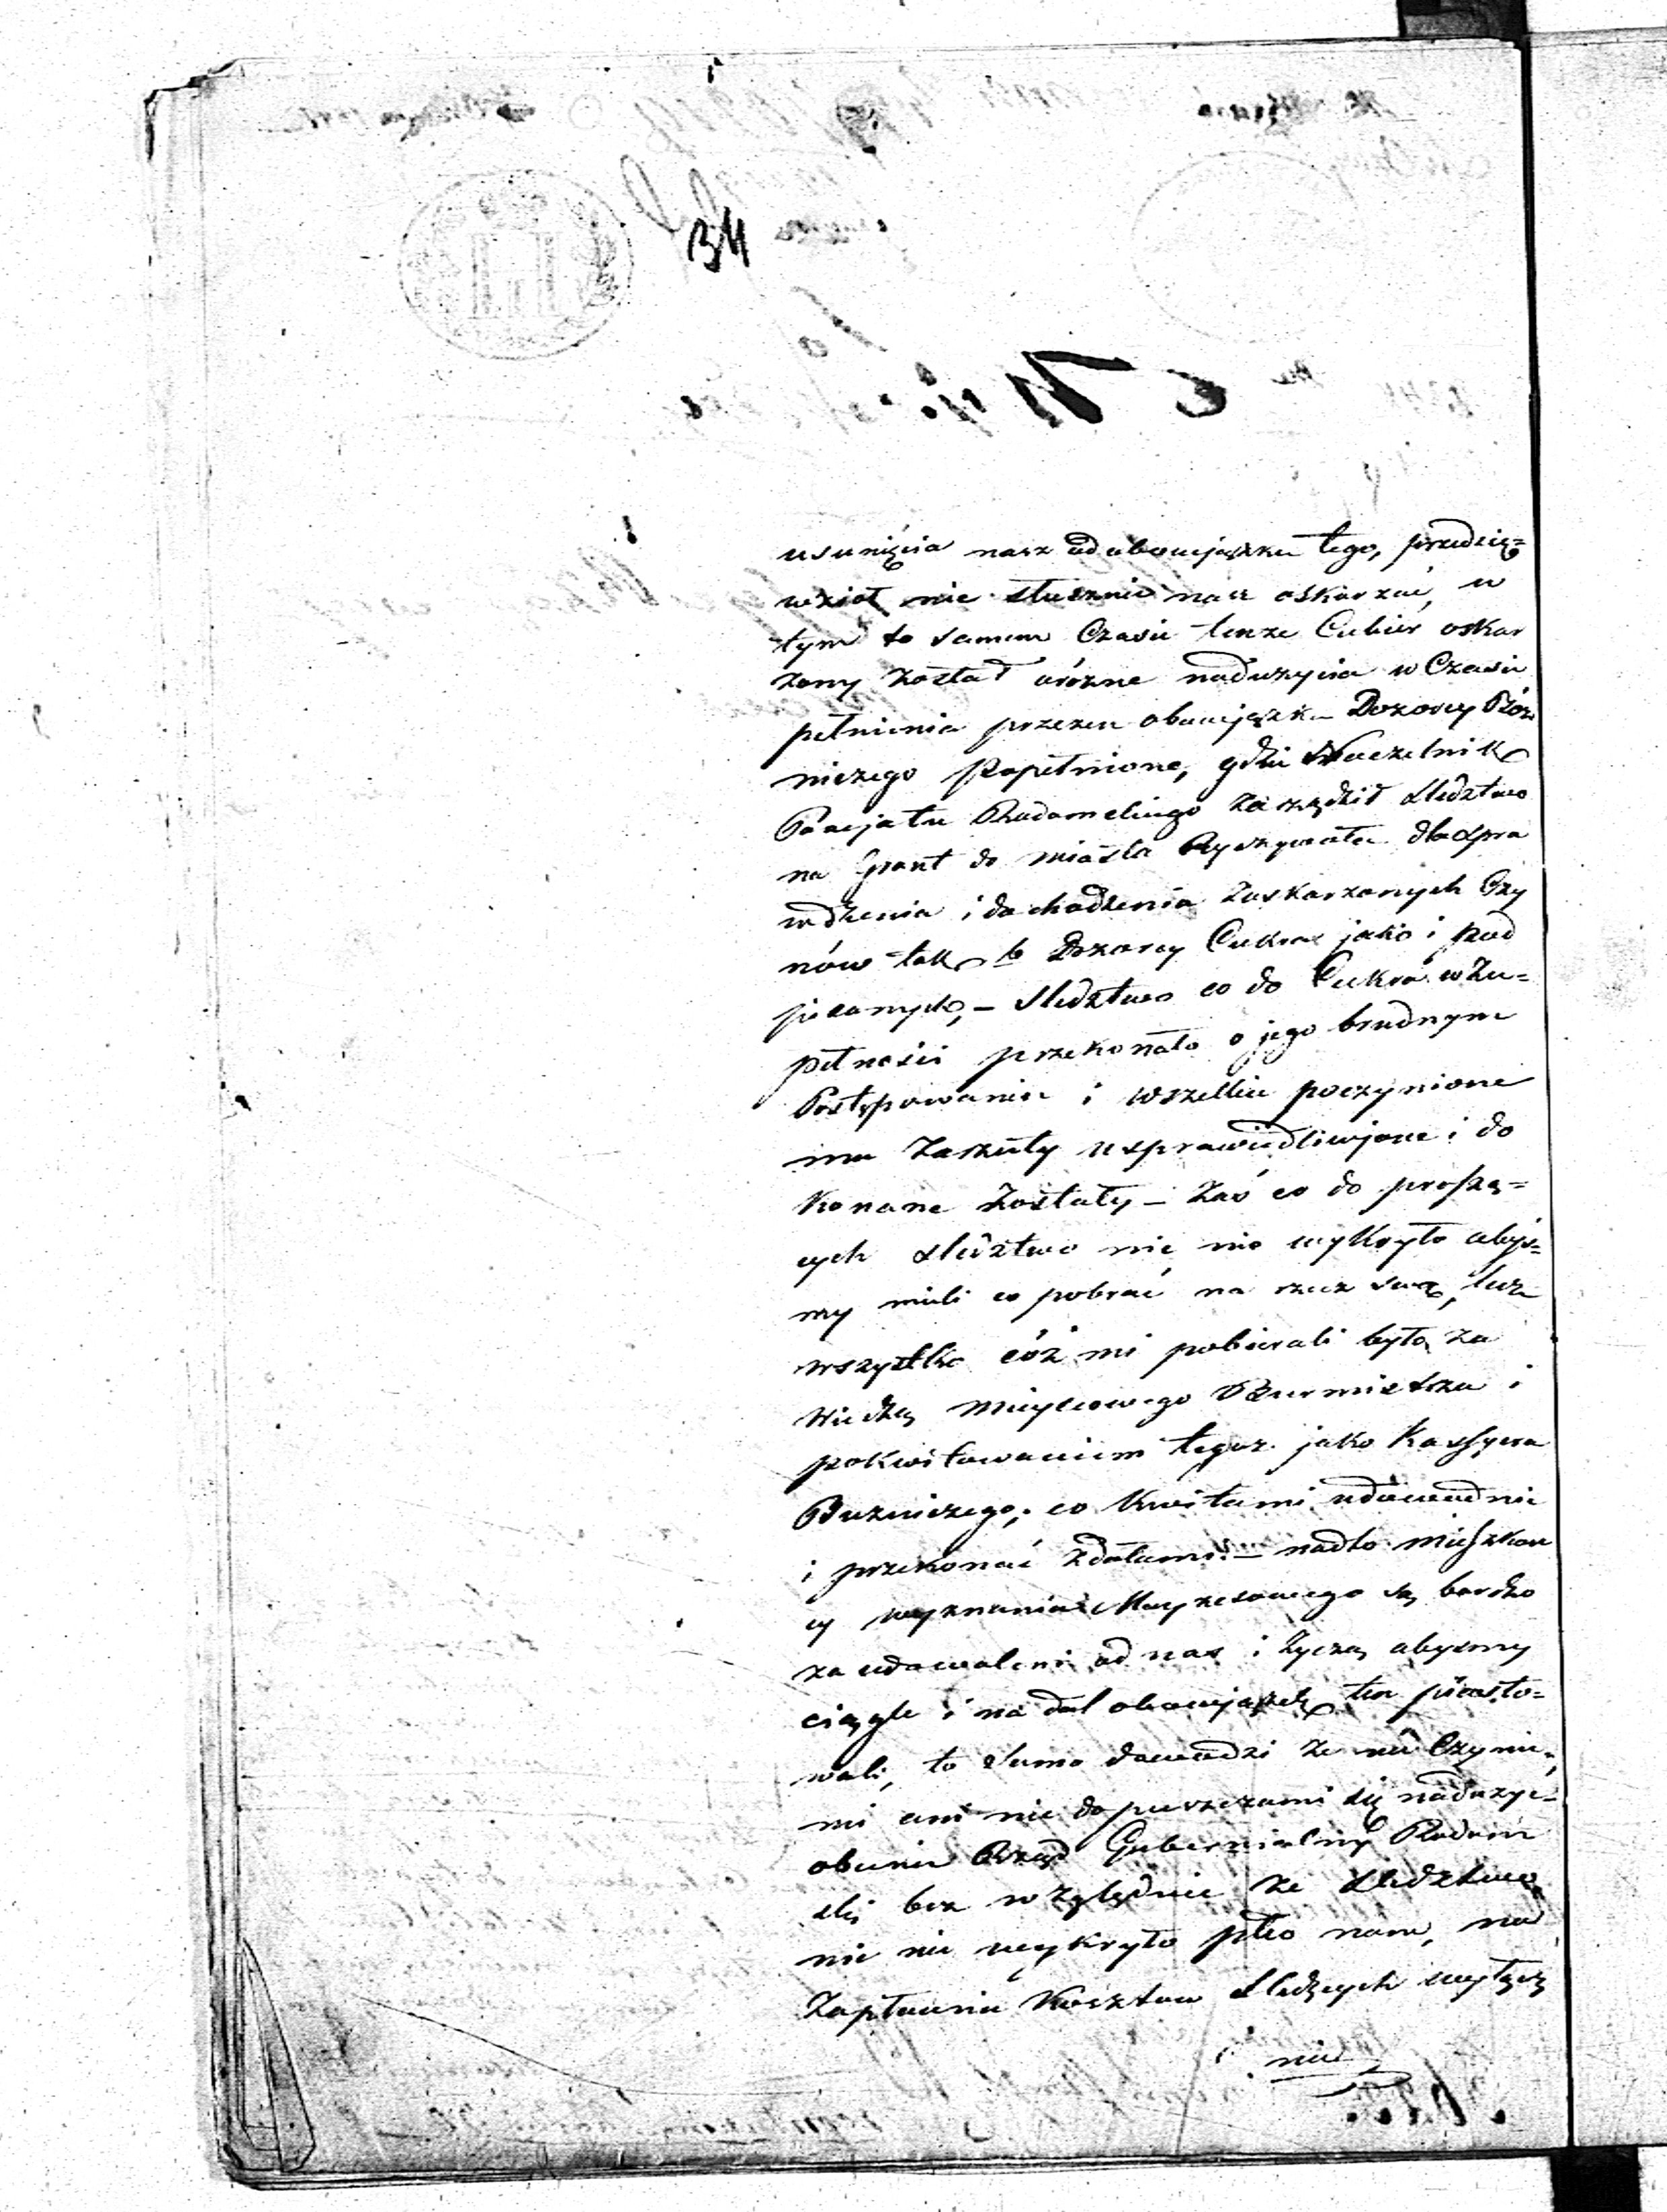 34
usunięcia nasz od obowiązku tego, przedzię=
wzioł nie słusznie nasz oskarzać, w
tym to samem Czasie tenze Cukier oskar
zony został oróżne nadużycia w Czasie
pełnienia przezen obowiązku Dozorcy Bóz
niczego popełnione, gdzie Naczelnik
Powjatu Radomskiego zarządził sledztwo
na Gront do miasta Ryczywołu dla spra
wdzenia i dochodzenia zaskarzonych Czy
nów tak b Dozorcy Cukra jako i pod
pisanych, – sledztwo co do Cukra w zu=
pełności przekonało o jego brudnym
Postępowaniu i wszelkie poczynione
mu Zarzuty usprawiedliwjone i do
konane zostały – Zaś co do proszą=
cych sledztwo nic nie wykryło abyś=
my mieli co pobrać na rzecz swą, lecz
wszystko cóż mi pobierali było za
wiedzą Mieyscowego Burmistrza i
pokwitowaniem tegoż jako Kassyera
Buzniczego, co kwitami udowodnić
i przekonać zdołamy. – nadto mieszkań
cy wyznania Moyzeszowego są bardzo
zaudowoleni od nas i życzą abysmy
ciągle i na dal obowjązek ten piasto=
wali, to samo dowodzi ze nie Czynie,
mi ani nie dopuszczami się nadużyć –
obecnie Rząd Gubernialny Radom
ski bez względnie że sledztwo
nic nie wykryło pko nam, na
Zapłacenie Kosztów sledczych
nie